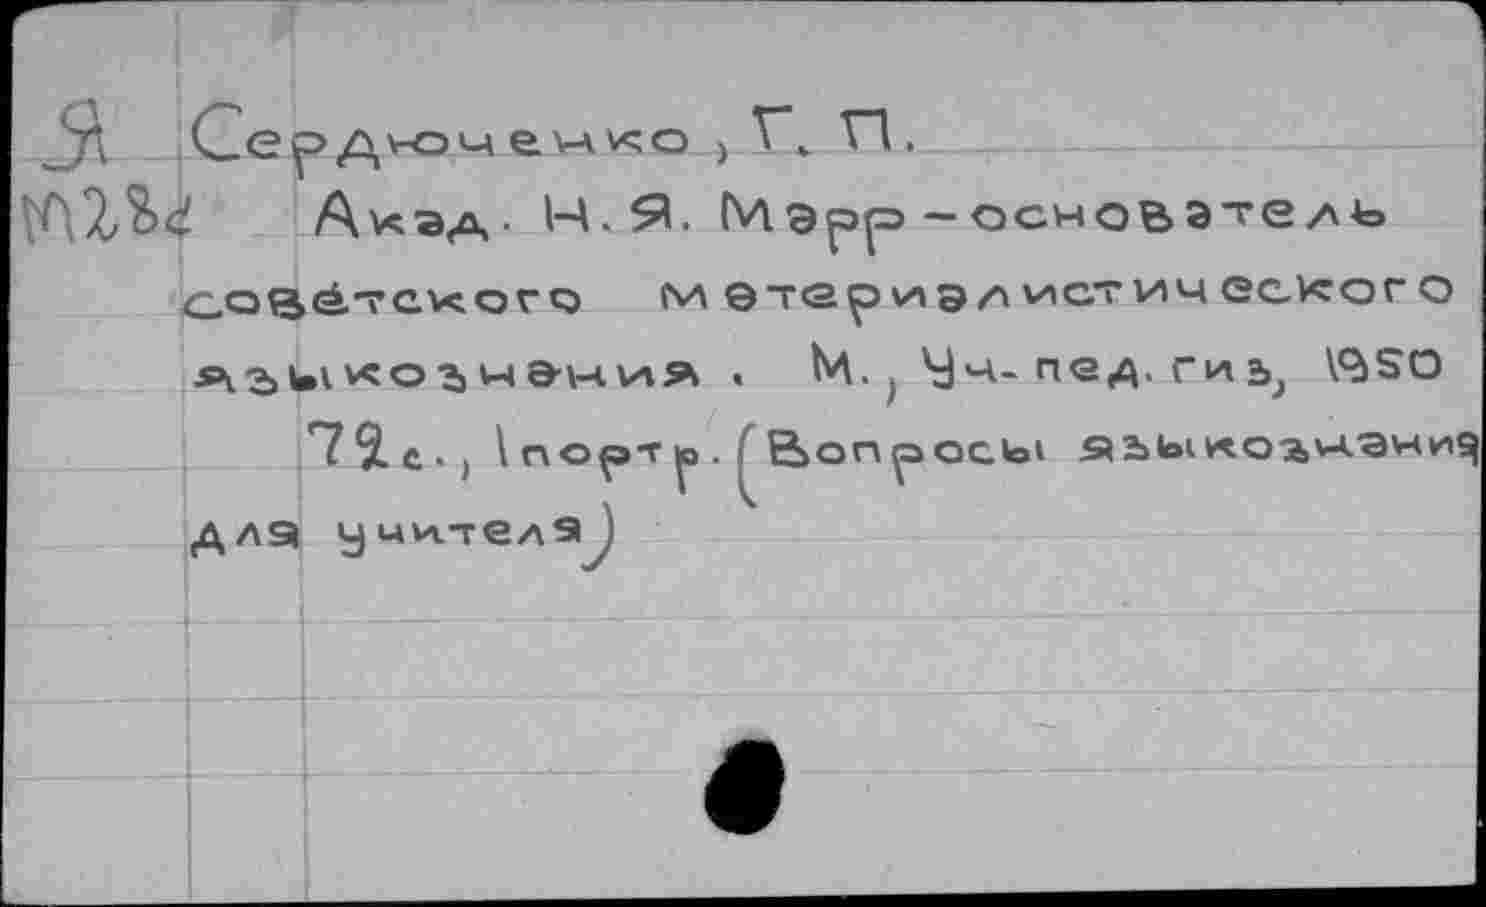 Я Сердюченко, Г. П.
Акад. Н. Я. Марр – основатель
советского материалистического
языкознания. М., Уч-пед. гиз, 1950
72с., 1 портр. (Вопросы языкознания
для учителя)